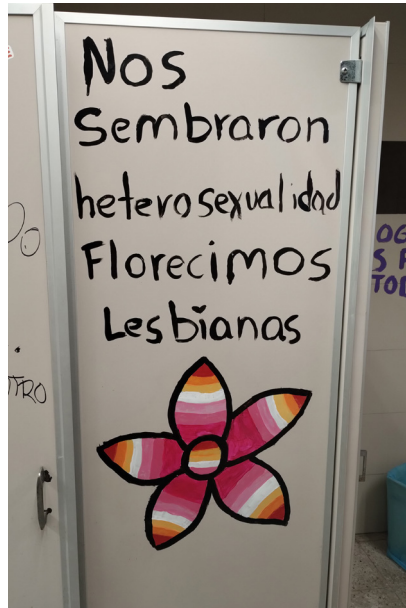 Nos
Sembraron
heterosexualidad
Florecimos
Lesbianas